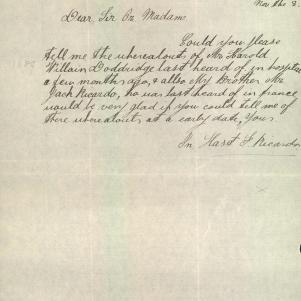 Dear Sir Or Madam
Could you please
tell me the whereabouts of Mr Harold
Willain Doddridge last heard of in hospital
a few months ago, & allso My Brother Mr
Jack Ricardo, ho was last heard of in france
would be very glad if you could tell me of
there whereabouts at a early date, Yours
In Hast J. Ricardo